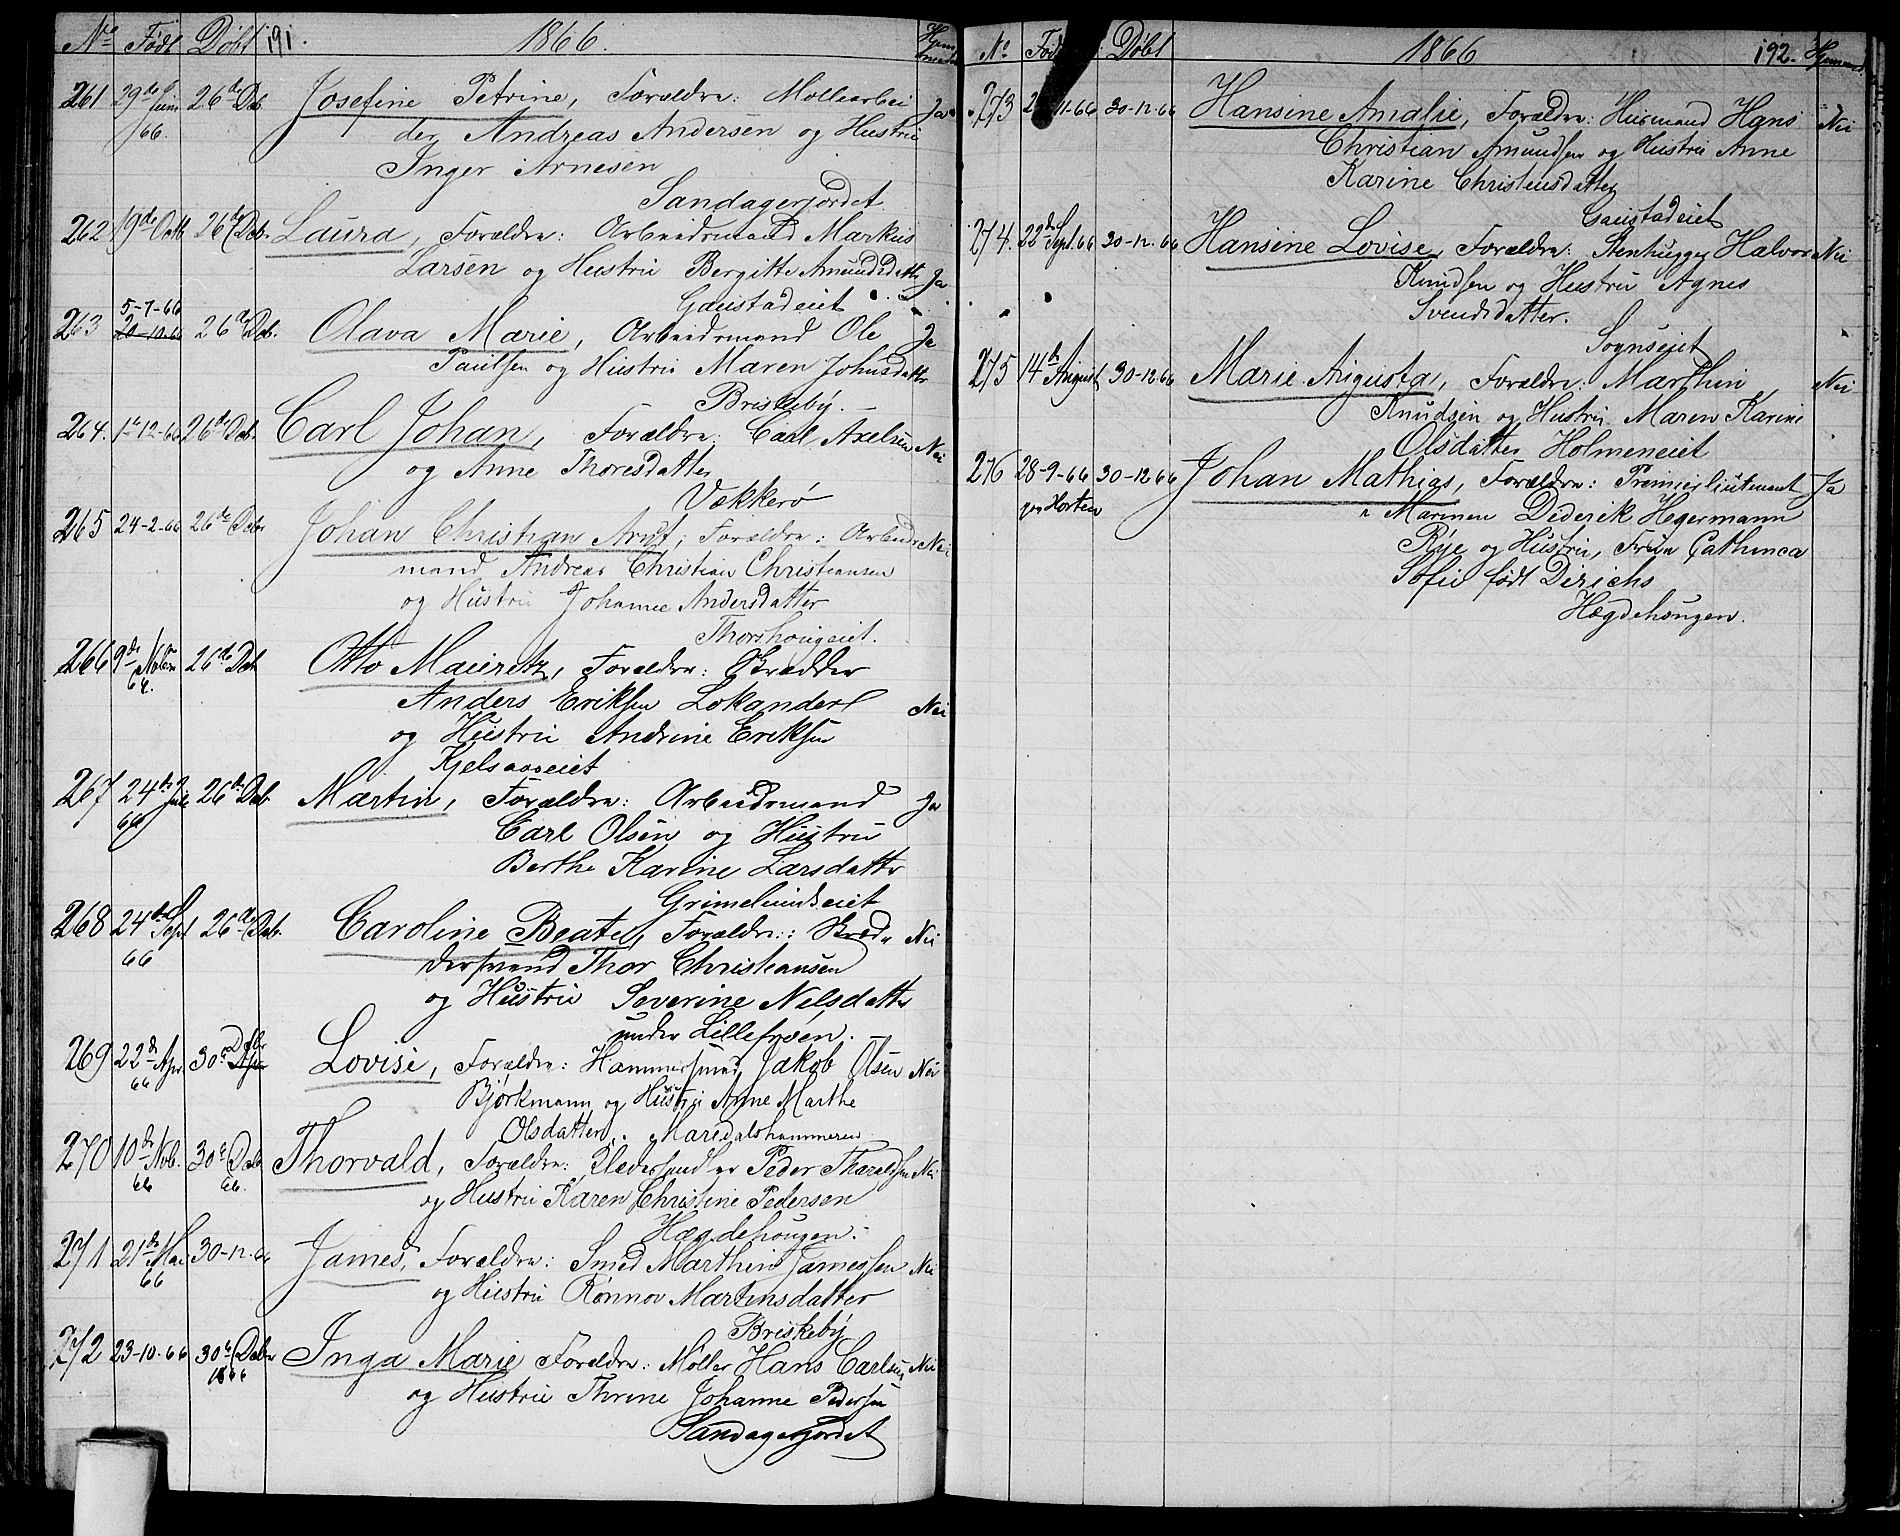 No Født Døbt 191. 1866. Hjemmedøbt
261 29de Juni 66. 26de Deb Josefine Petrine, Forældre: Møllearbei Ja
der Andreas Andersen og Hustru
Inger Arnesen
Sandagerjordet
262 19de Octb 26de Deb. Laura, Forældre: Arbeidsmand Markus
Larsen og Hustru Bergitte Amundsdatter Ja
Gaustadeiet
263 5-7-66 20-10-66 26de Deb. Olava Marie, Arbeidsmand Ole Ja
Paulsen og Hustru Maren Johnsdatter
Briskeby.
264. 1-12-66 26de Deb. Carl Johan, Forældre: Carl Axelsen Nei
og Anne Thoresdatter
Vækkerø
265 24-2-66 26de Debr Johan Christian Arnt, Forældre: Arbeids Nei
mand Andreas Christian Christiansen
og Hustru Johanne Andersdatter
Thorshougeiet.
266 9de Novbr 64. 26de Deb Otto Mauretz, Forældre: Skrædder
Anders Eriksen Lokanderl Nei
og Hustru Andrine Eriksen
Kjelsaaseiet
267 24de Juli 66 26de Deb Martin, Forældre: Arbeidsmand Ja
Carl Olsen og Hustru
Berthe Karine Larsdatter
Grimelundseiet
268 24de Sept 66 26de Deb. Caroline Beate, Forældre: Skræd- Nei
dersvend Thor Christiansen
og Hustru Severine Nelsdatter
under Lillefrøen.
269 22de Apr 66 30te Apr Debr Lovise, Forældre: Hammersmed Jakob Olsen Nei
Bjørkmann og Hustru Anne Marthe
Olsdatter. Maridalshammeren
270 10de Novb. 66 30te Deb 66. Thorvald, Forældre: Klædehandler Peder Tharaldsen Nei
og Hustru Karen Christine Pedersen
Hægdehougen.
271 21de Mai 66 30-12-66 James, Forældre: Smed Marthin Jamessen Nei
og Hustru Rønnov Martinsdatter
Briskeby
272 23-10-66 30te Debr 1866 Inga Marie Forældre: Møller Hans Carlsen Nei
og Hustru Thrine Johanne Pedersen
Sandagerjordet
No Født Døbt 1866 192. Hjemmed.
273 11-66 30-12-66 Hansine Amalie, Forældre: Husmand Hans Nei
Christian Amundsen og Hustru Anne
Karine Christensdatter
Gaustadeiet
274. 22de Sept. 66 30-12-66 Hansine Lovise, Forældre: Stenhugger Halvor Nei
Knudsen og Hustru Agnes
Svendsdatter.
Sognseiet
275 14de August 30-12-66 Marie Augusta, Forældre: Marthin Nei
Knudsen og Hustru Maren Karine
Olsdatter Holmeneiet
276 28-9-66 paa Horten 30-12-66 Johan Mathias, Forældre: Premierlieutenant Ja
i Marinen Diderik Hegermann
Rye og Hustru, Frue Cathinca
Sofie født Dirichs
Hægdehougen.